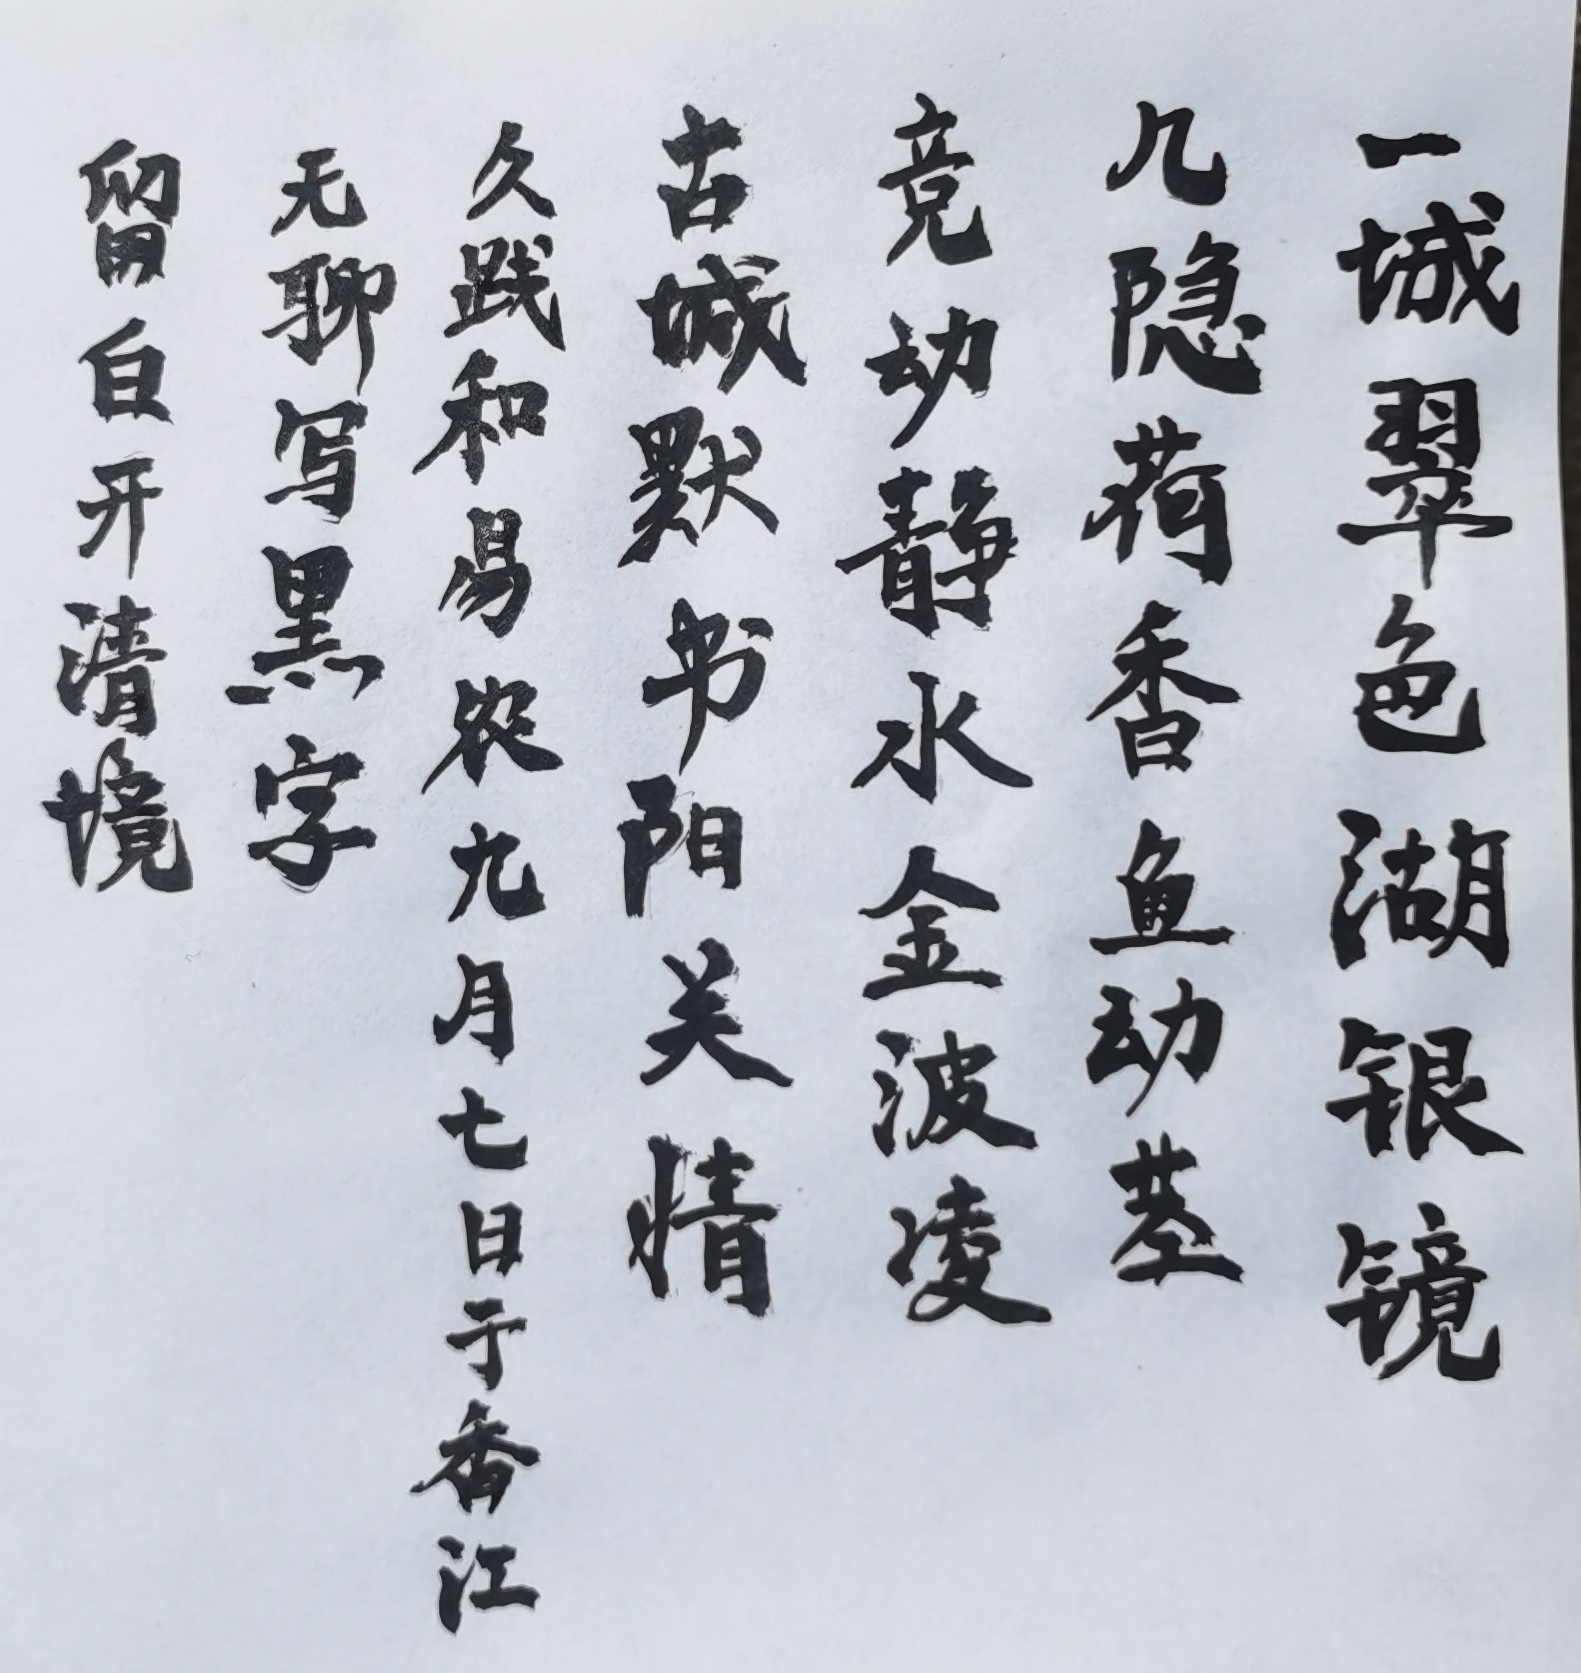 一城翠色湖银镜
几隐荷香鱼动茎
竞动静水金波凌
古城默书阳关情
久践和易农九月七日于香江
无聊写黑字
留白开清境